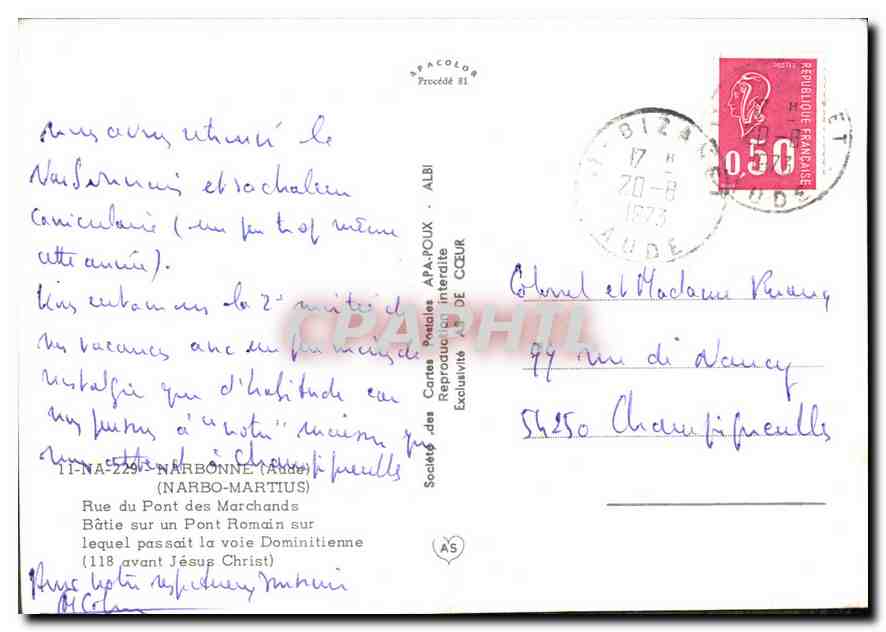 APACOLOR
Procédé 81
nous avons retrouvé le
Narbonnais et sa chaleur
caniculaire (un peu trop même
cette année).
Nous entamons la 2e moitié de
nos vacances avec un peu moins de
nostalgie que d'habitude car
nous pensons à "notre" maison qui
nous attend à Champigneulles
11-NA-229 - NARBONNE (Aude)
(NARBO-MARTIUS)
Rue du Pont des Marchands
Bâtie sur un Pont Romain sur
lequel passait la voie Dominitienne
(118 avant Jésus Christ)
Avec notre respectueux souvenir
Société des Cartes Postales APA-POUX - ALBI
Reproduction interdite
Exclusivité AS DE CŒUR
AS
REPUBLIQUE FRANÇAISE
POSTES
0,50
17 H
20-8
1973
AUDE
Colonel et Madame
99 rue de Nancy
54250 Champigneulles
CPAPHIL